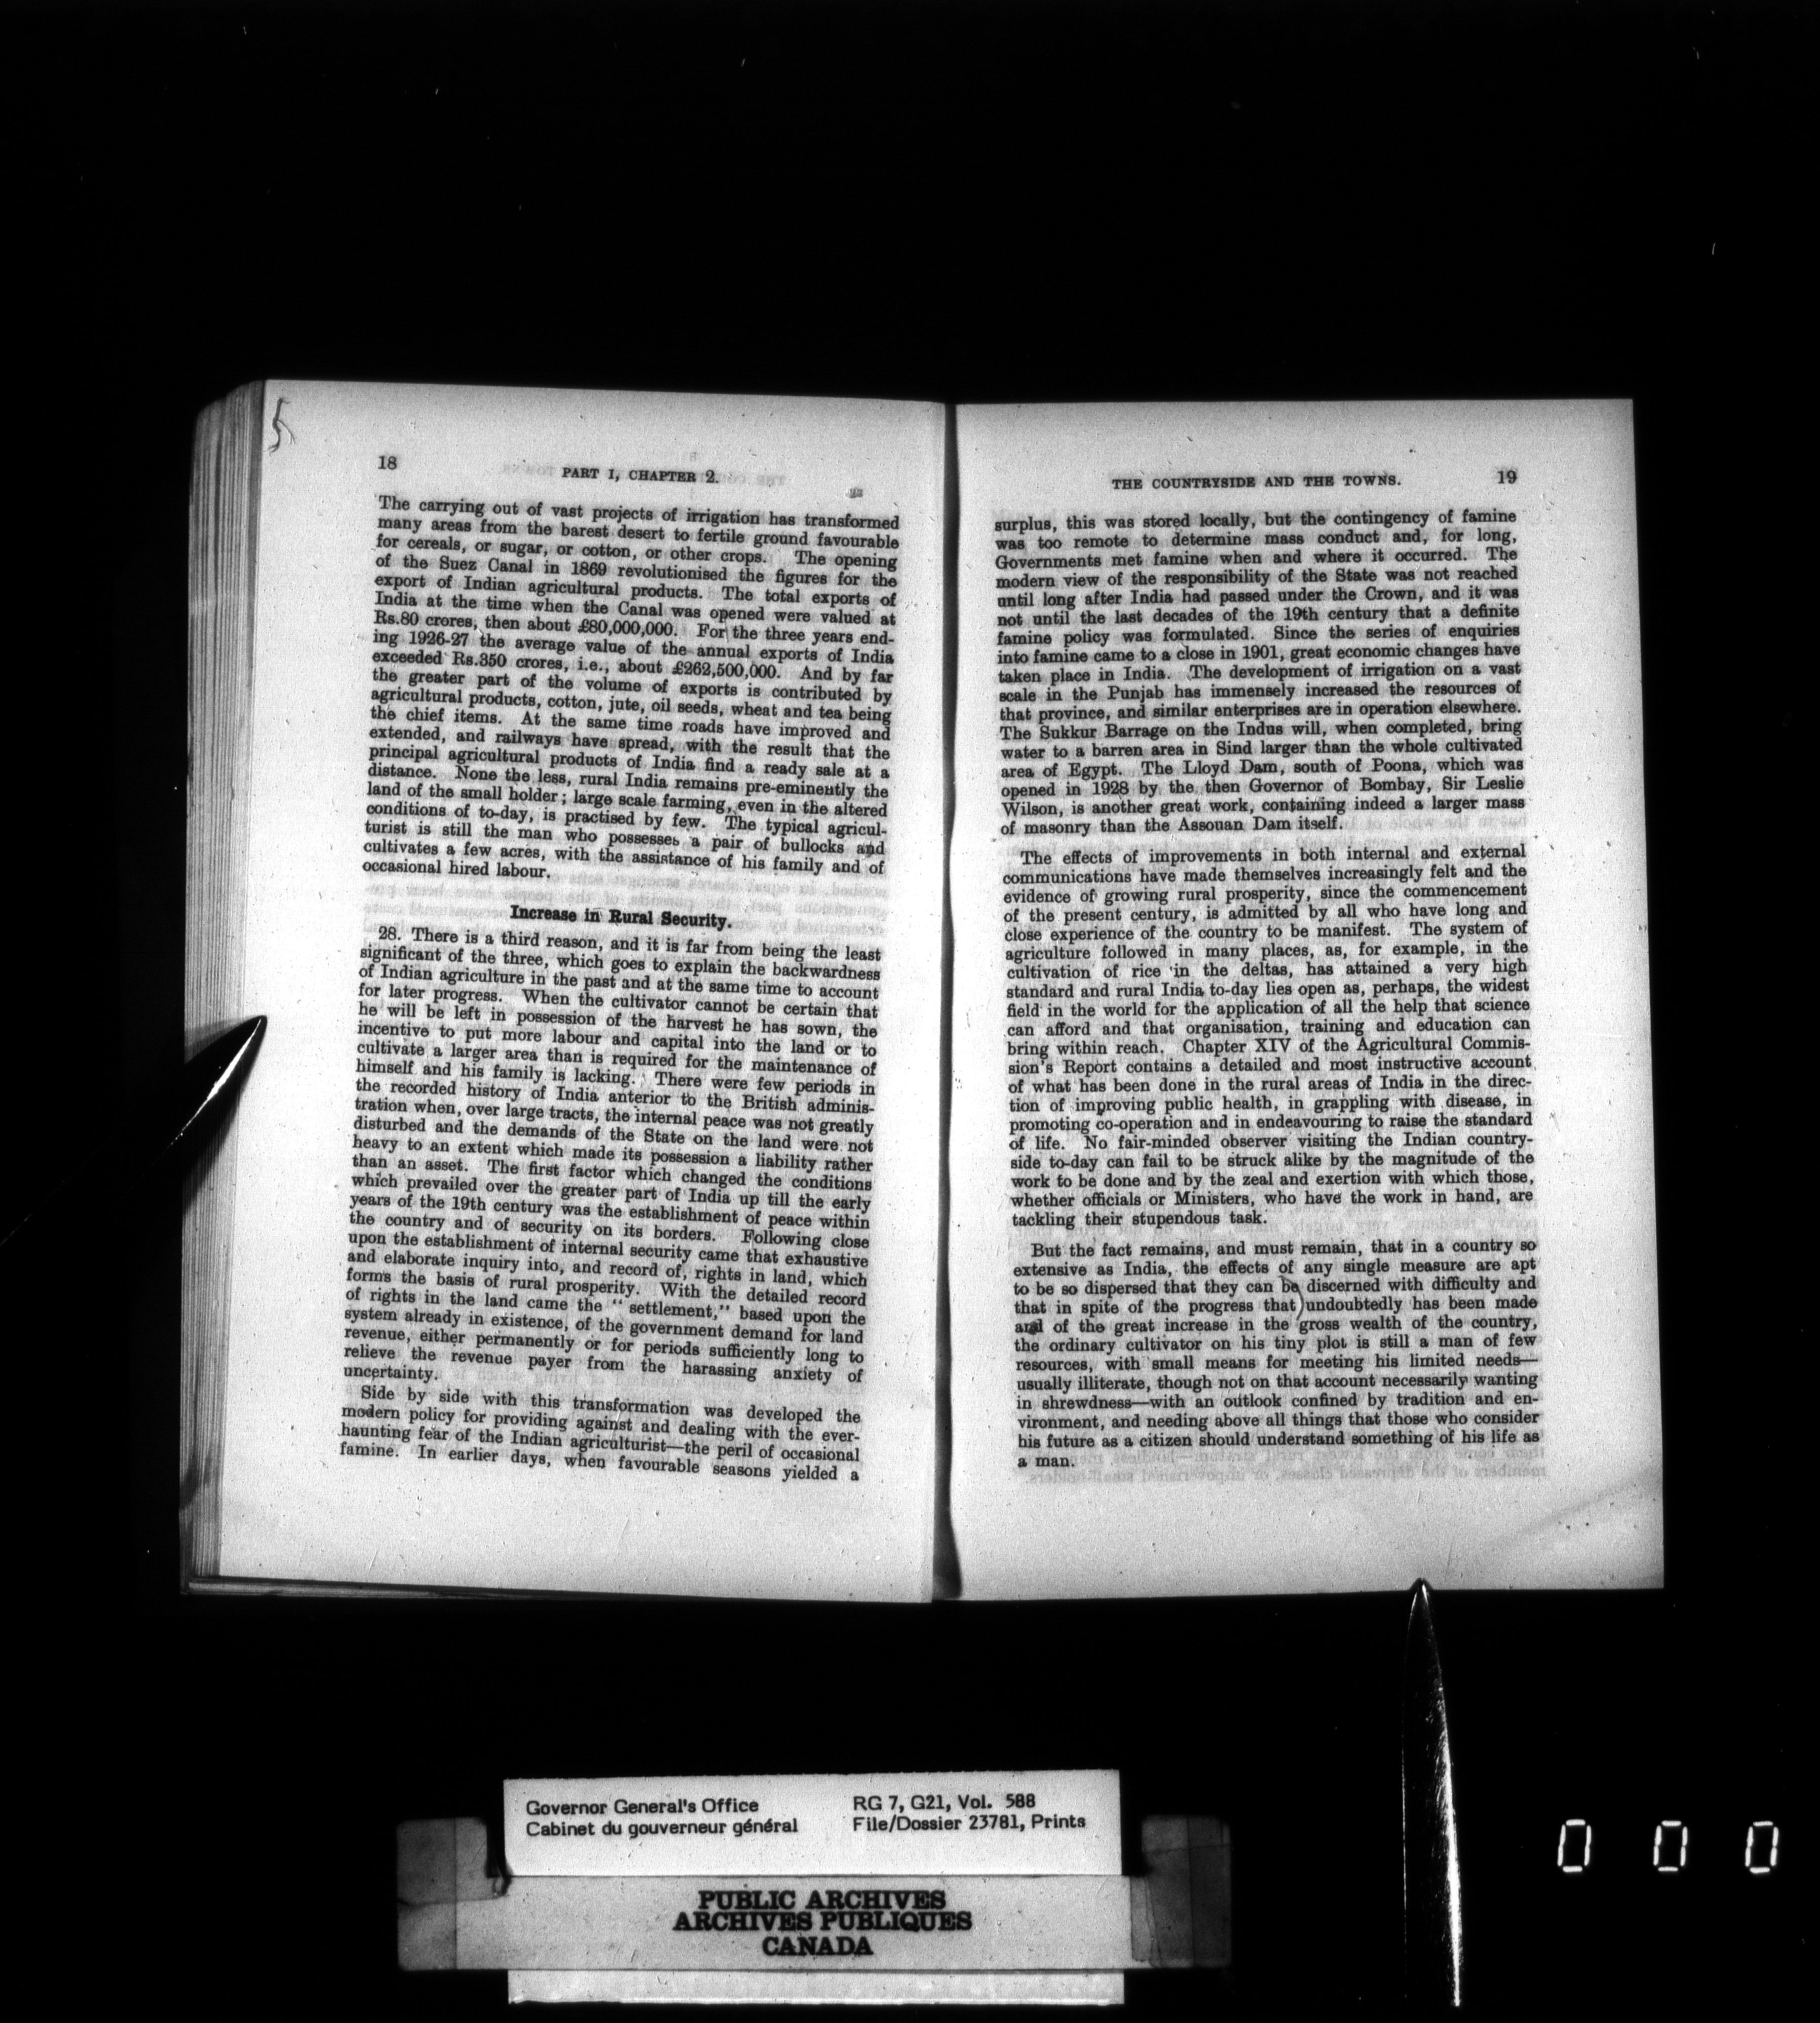 18
PART I, CHAPTER 2.
The carrying out of vast projects of irrigation has transformed
many areas from the barest desert to fertile ground favourable
for cereals, or sugar, or cotton, or other crops. The opening
of the Suez Canal in 1869 revolutionised the figures for the
export of Indian agricultural products. The total exports of
India at the time when the Canal was opened were valued at
Rs.80 crores, then about £80,000,000. For the three years end-
ing 1926-27 the average value of the annual exports of India
exceeded Rs.350 crores, i.e., about £262,500,000. And by far
the greater part of the volume of exports is contributed by
agricultural products, cotton, jute, oil seeds, wheat and tea being
the chief items. At the same time roads have improved and
extended, and railways have spread, with the result that the
principal agricultural products of India find a ready sale at a
distance. None the less, rural India remains pre-eminently the
land of the small holder; large scale farming, even in the altered
conditions of to-day, is practised by few. The typical agricul-
turist is still the man who possesses a pair of bullocks and
cultivates a few acres, with the assistance of his family and of
occasional hired labour.
Increase in Rural Security.
28. There is a third reason, and it is far from being the least
significant of the three, which goes to explain the backwardness
of Indian agriculture in the past and at the same time to account
for later progress. When the cultivator cannot be certain that
he will be left in possession of the harvest he has sown, the
incentive to put more labour and capital into the land or to
cultivate a larger area than is required for the maintenance of
himself and his family is lacking. There were few periods in
the recorded history of India anterior to the British adminis-
tration when, over large tracts, the internal peace was not greatly
disturbed and the demands of the State on the land were not
heavy to an extent which made its possession a liability rather
than an asset. The first factor which changed the conditions
which prevailed over the greater part of India up till the early
years of the 19th century was the establishment of peace within
the country and of security on its borders. Following close
upon the establishment of internal security came that exhaustive
and elaborate inquiry into, and record of, rights in land, which
forms the basis of rural prosperity. With the detailed record
of rights in the land came the " settlement," based upon the
system already in existence, of the government demand for land
revenue, either permanently or for periods sufficiently long to
relieve the revenue payer from the harassing anxiety of
uncertainty.
Side by side with this transformation was developed the
modern policy for providing against and dealing with the ever-
haunting fear of the Indian agriculturist—the peril of occasional
famine. In earlier days, when favourable seasons yielded a
THE COUNTRYSIDE AND THE TOWNS.
19
surplus, this was stored locally, but the contingency of famine
was too remote to determine mass conduct and, for long,
Governments met famine when and where it occurred. The
modern view of the responsibility of the State was not reached
until long after India had passed under the Crown, and it was
not until the last decades of the 19th century that a definite
famine policy was formulated. Since the series of enquiries
into famine came to a close in 1901, great economic changes have
taken place in India. The development of irrigation on a vast
scale in the Punjab has immensely increased the resources of
that province, and similar enterprises are in operation elsewhere.
The Sukkur Barrage on the Indus will, when completed, bring
water to a barren area in Sind larger than the whole cultivated
area of Egypt. The Lloyd Dam, south of Poona, which was
opened in 1928 by the then Governor of Bombay, Sir Leslie
Wilson, is another great work, containing indeed a larger mass
of masonry than the Assouan Dam itself.
The effects of improvements in both internal and external
communications have made themselves increasingly felt and the
evidence of growing rural prosperity, since the commencement
of the present century, is admitted by all who have long and
close experience of the country to be manifest. The system of
agriculture followed in many places, as, for example, in the
cultivation of rice in the deltas, has attained a very high
standard and rural India to-day lies open as, perhaps, the widest
field in the world for the application of all the help that science
can afford and that organisation, training and education can
bring within reach. Chapter XIV of the Agricultural Commis-
sion's Report contains a detailed and most instructive account
of what has been done in the rural areas of India in the direc-
tion of improving public health, in grappling with disease, in
promoting co-operation and in endeavouring to raise the standard
of life. No fair-minded observer visiting the Indian country-
side to-day can fail to be struck alike by the magnitude of the
work to be done and by the zeal and exertion with which those,
whether officials or Ministers, who have the work in hand, are
tackling their stupendous task.
But the fact remains, and must remain, that in a country so
extensive as India, the effects of any single measure are apt
to be so dispersed that they can be discerned with difficulty and
that in spite of the progress that undoubtedly has been made
and of the great increase in the gross wealth of the country,
the ordinary cultivator on his tiny plot is still a man of few
resources, with small means for meeting his limited needs—
usually illiterate, though not on that account necessarily wanting
in shrewdness—with an outlook confined by tradition and en-
vironment, and needing above all things that those who consider
his future as a citizen should understand something of his life as
a man.
Governor General's Office
Cabinet du gouverneur général
RG 7, G21, Vol. 588
File/Dossier 23781, Prints
PUBLIC ARCHIVES
ARCHIVES PUBLIQUES
CANADA
0 0 0